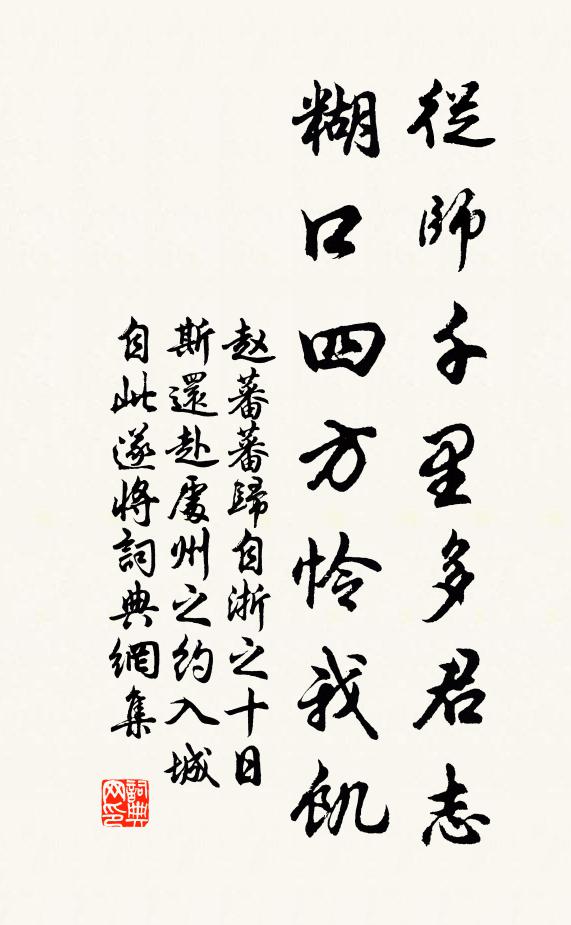 從師千里多君志
糊口四方怜我飢
赵蕃蕃歸自浙之十日
斯還赴處州之約入城
自此遂将詞典網集
詞典网印